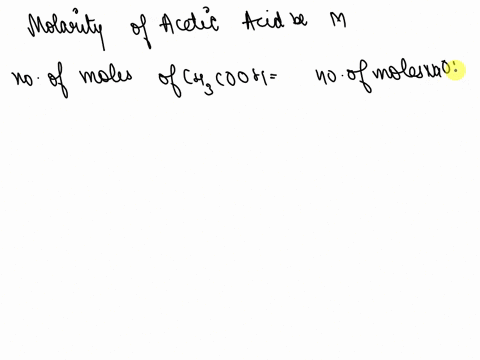 Molarity of Acetic Acid be M
no. of moles of CH3COOH = no. of moles